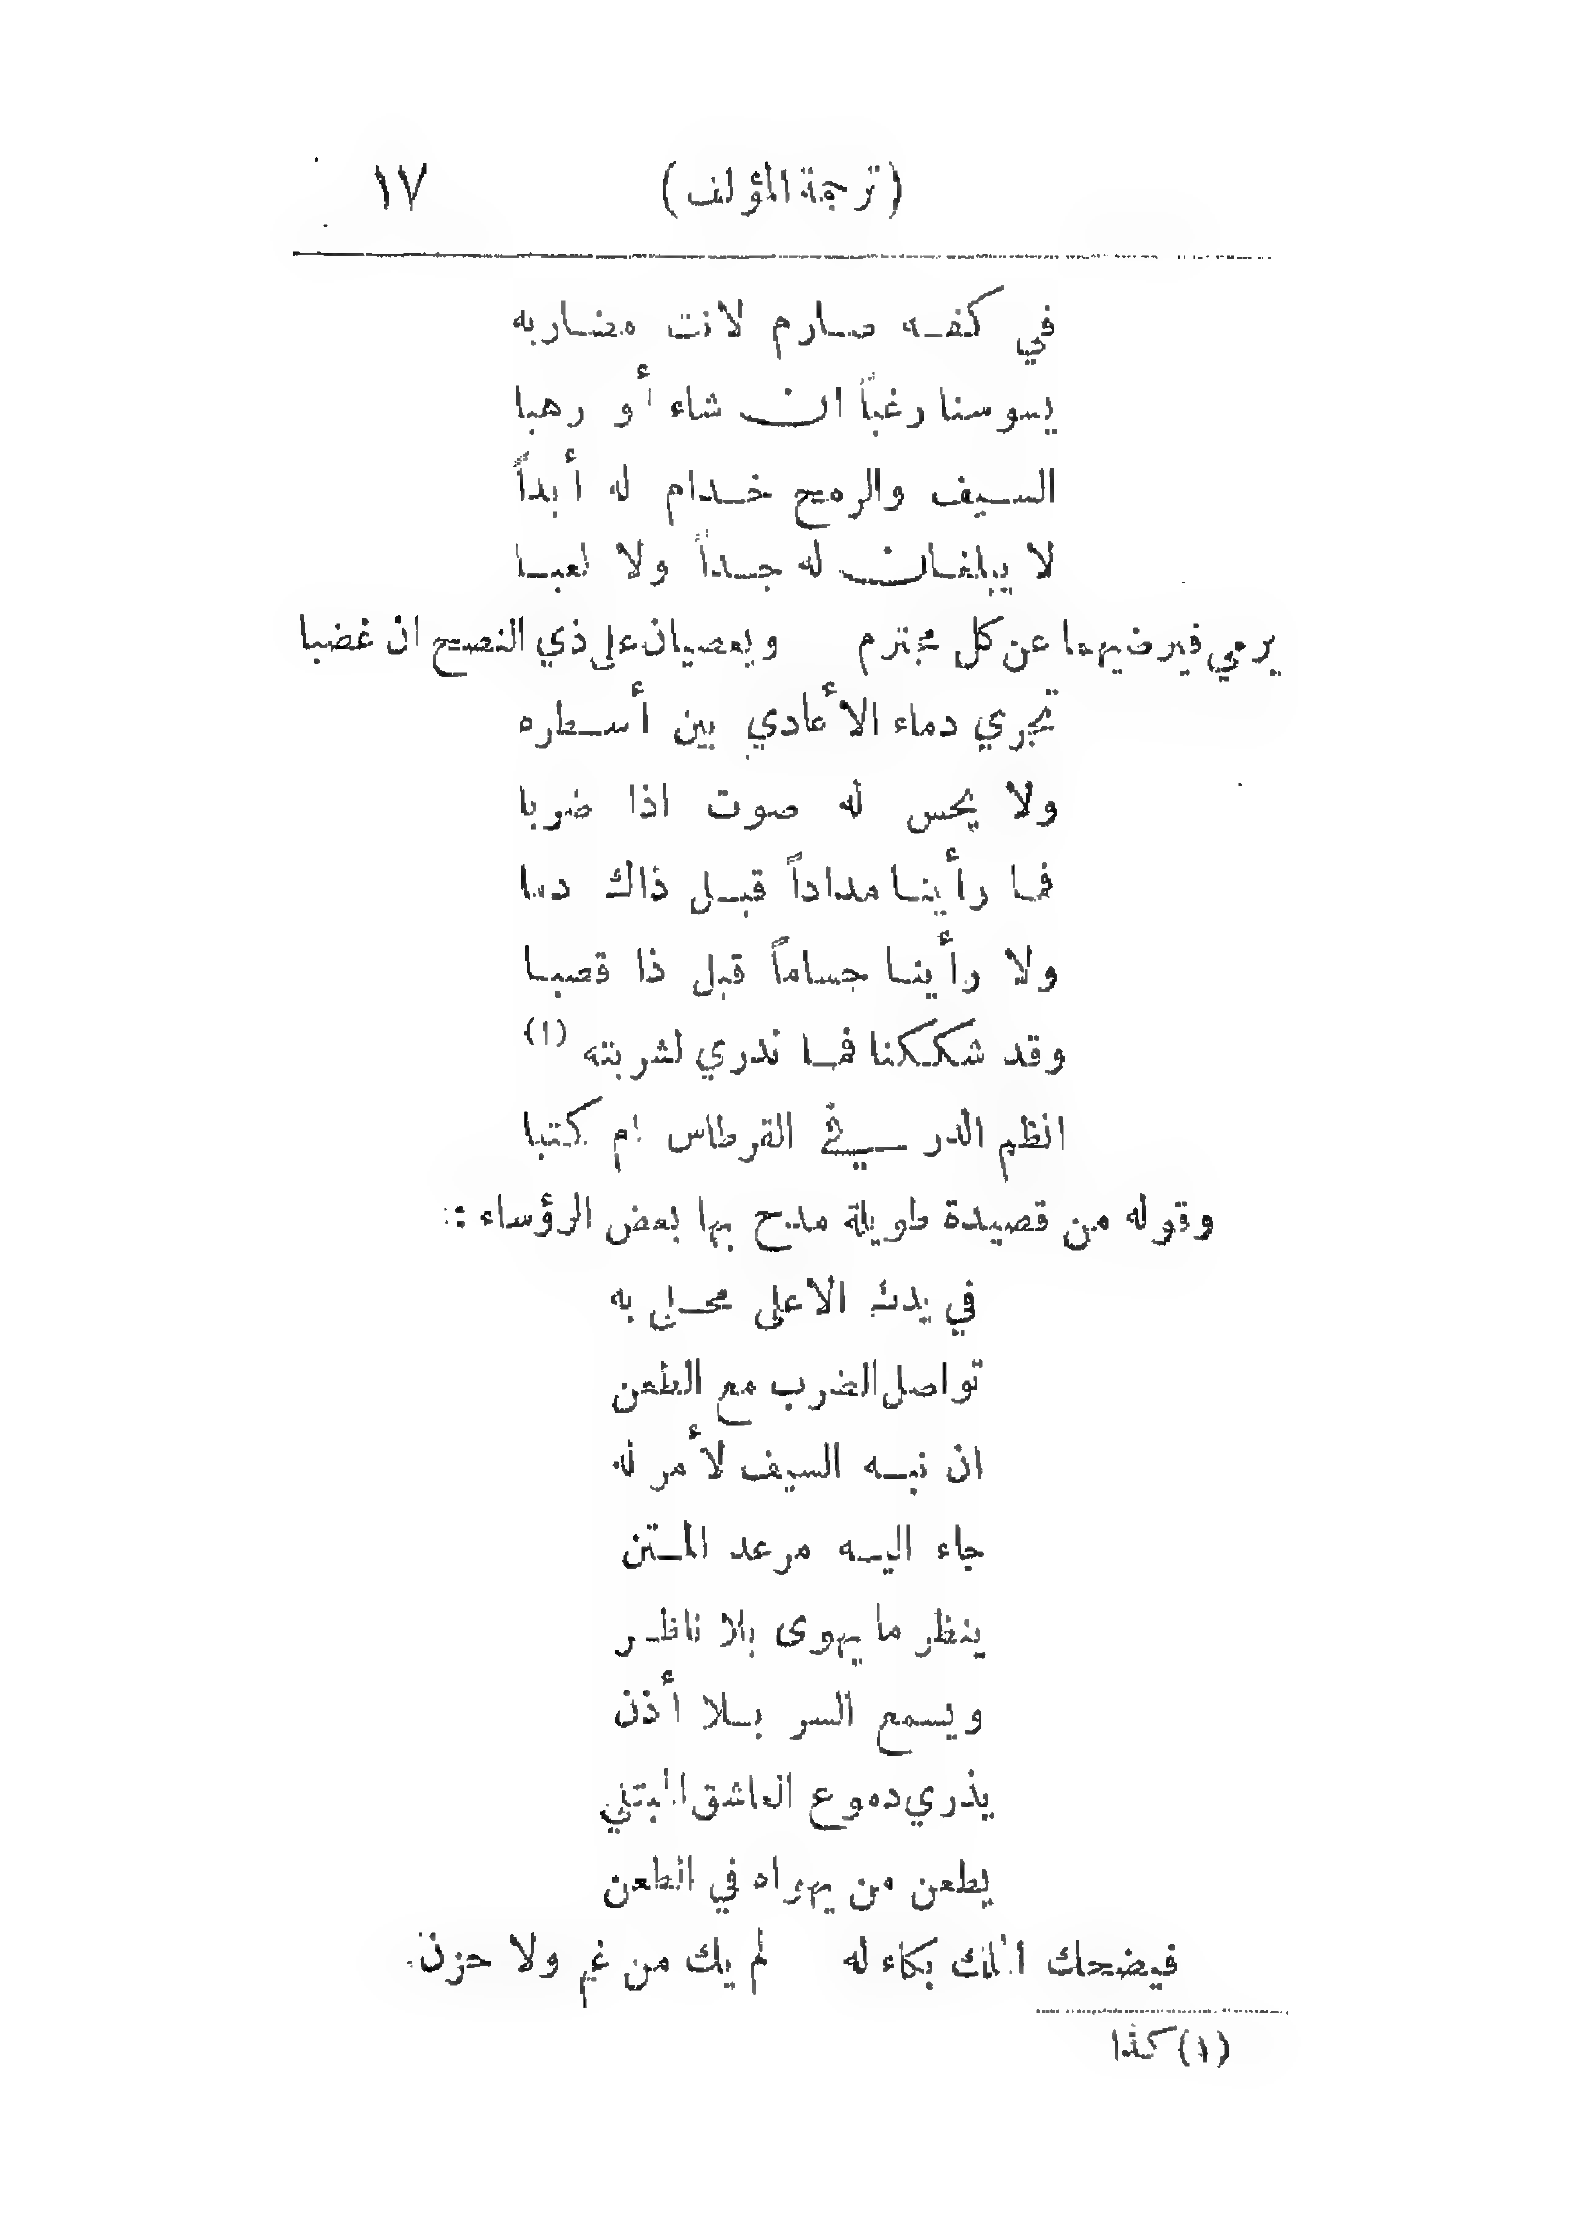 (ترجمة المؤلف) ١٧
في كفه صارم لانت مضاربه
يسوسنا رغباً ان شاء أو رهبا
السيف والرمح خدام له أبداً
لا يبلغان له جداً ولا لعبا
يرمي فيرضيهما عن كل مجترم ويعصيان على ذي النصح ان غضبا
تجري دماء الأعادي بين أسطره
ولا يحس له صوت اذا ضربا
فما رأينا مداداً قبل ذاك دما
ولا رأينا حساماً قبل ذا قصبا
وقد شككنا فما ندري لشربته (١)
انظم الدر في القرطاس ام كتبا
وقوله من قصيدة طويلة مدح بها بعض الرؤساء :
في يدك الاعلى محلى به
تواصل الضرب مع الطعن
ان نبه السيف لأمر له
جاء اليه مرعد المتن
ينظر ما يهوى بلا ناظر
ويسمع السر بلا أذن
يذري دموع العاشق المبتلي
يطعن من يهواه في الطعن
فيضحك الملك بكاء له لم يك من غم ولا حزن
(١) كذا